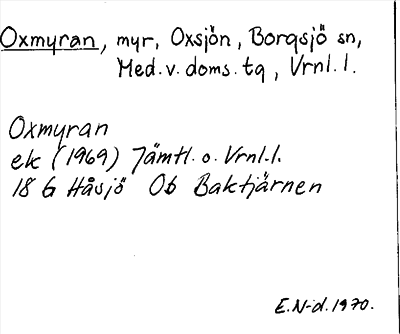 Oxmyran, myr, Oxsjön, Borgsjö sn,
Med. v. doms. tg, Vrnl. l.
Oxmyran
ek (1969) Jämtl. o. Vrnl. l.
18 G Håsjö Ob Baktjärnen
E. N-d. 1970.